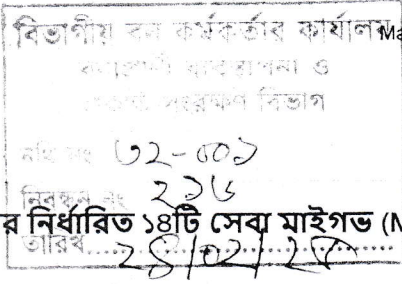 বিভাগীয় বন কর্মকর্তার কার্যালয় Ma
বন্যপ্রাণী ব্যবস্থাপনা ও
প্রকৃতি সংরক্ষণ বিভাগ
নথি নং
নিবন্ধন নং ২১৬
র নির্ধারিত ১৪টি সেবা মাইগভ (M
তারিখ